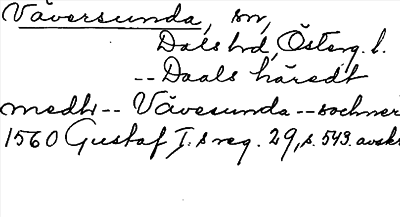 Väversunda, sn,
Dals hd, Österg. l.
-- Daals häredt
medh -- Vävesunda -- sochner
1560 Gustaf I:s reg. 29, s. 543. avskr